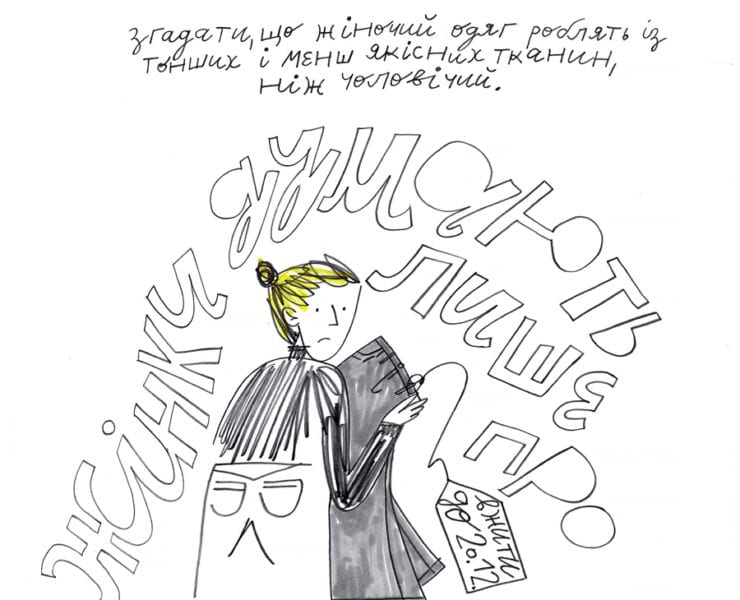 згадати, що жіночий одяг роблять із
тонших і менш якісних тканин,
ніж чоловічий.
жінки думають
лише про
вжити
до 20.12.